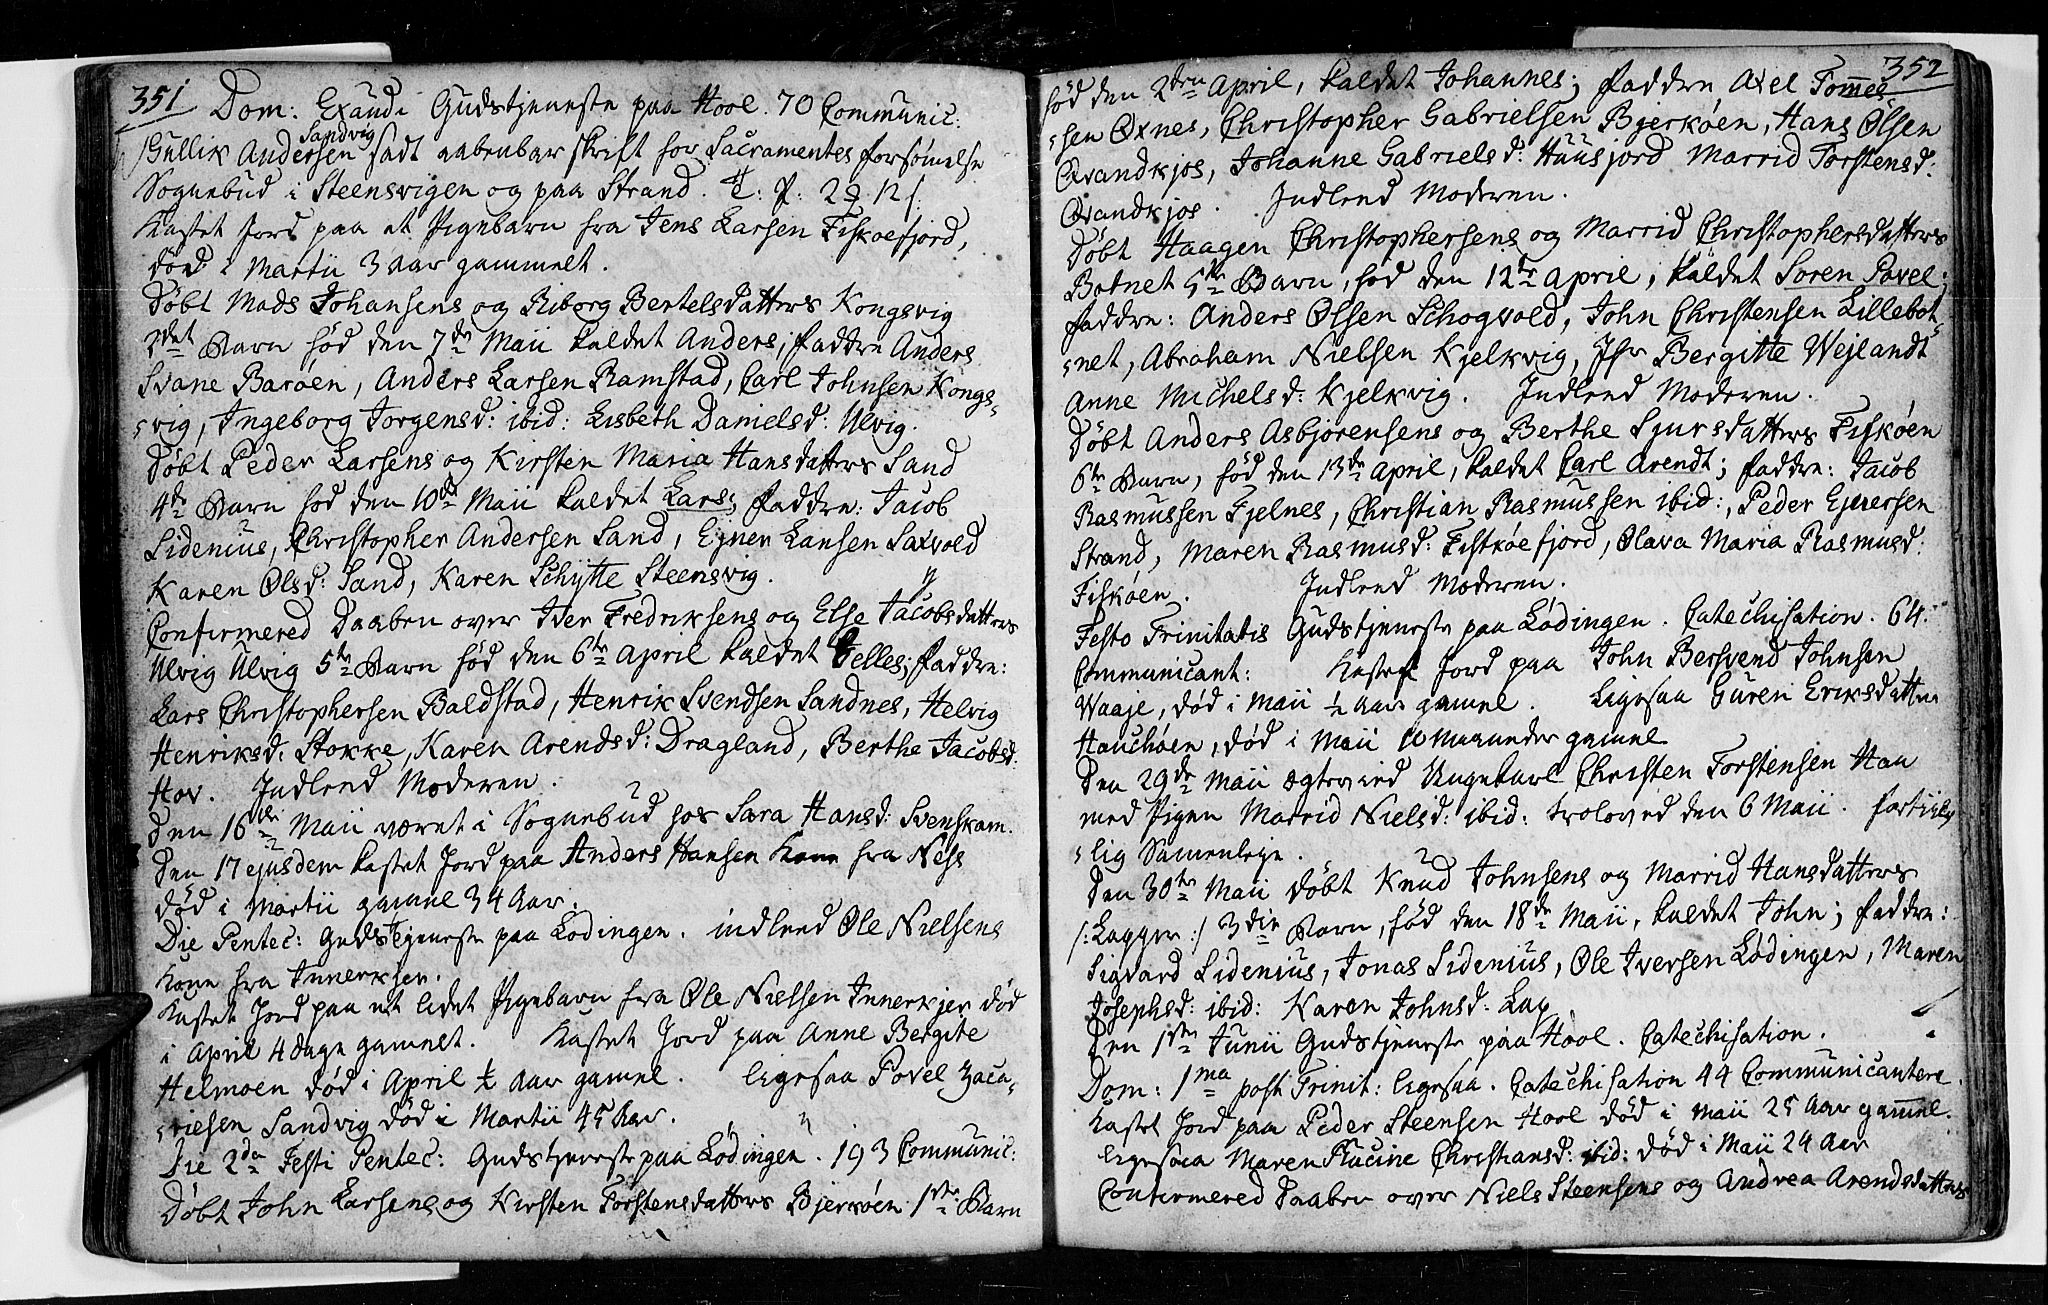 351
Dom: Exaudi Gudstjeneste paa Hool. 70 Communic:
Gullik Andersen Sandvig sadt aabenbar skrift for Sacramentes forsømelse
Sognebud i Steensvigen og paa Strand. T: P: 2 12 s.
Kastet Jord paa et Pigebarn fra Jens Larsen Fiskøefjord,
død i Martii 3 aar gammelt.
Døbt Mads Johansens og Riborg Bertelsdatters Kongsvig
2det Barn fød den 7de Maii kaldet Anders; faddre Anders
Svane Barøen, Anders Larsen Ramstad, Carl Johnsen Kongs-
-vig, Ingeborg Jorgensd: ibid: Lisbeth Danielsd: Ulvig.
Døbt Peder Larsens og Kirsten Maria Hansdatters Sand
4de Barn fød den 10de Maii kaldet Lars; faddre: Jacob
Sidenius, Christopher Andersen Sand, Ejner Larsen Saxvold
Karen Olsd: Sand, Karen Schytte Steensvig.
Confirmered Daaben over Iver Fredriksens og Else Jacobsdatters
Ulvig Ulvig 5te Barn fød den 6te April kaldet Jelles; faddre:
Lars Christophersen Baldstad, Henrik Svendsen Sandnes, Helvig
Henriksd: Stokke, Karen Arendsd: Dragland, Berthe Jacobsd:
Hov. Indleed Moderen.
den 16de Maii været i Sognebud hos Sara Hansd: Svenskam.
Den 17 ejusdem kastet Jord paa Anders Hansen fra Ness
død i Martii gammel 34 Aar.
Die Pentec: Gudstjeneste paa Lodingen. indleed Ole Nielsens
Kone fra Innerkjer.
Kastet Jord paa et lidet Pigebarn fra Ole Nielsen Innerkjer død
i April 4 dage gammelt. Kastet Jord paa Anne Bergite
Helmoen død i April ¼ Aar gammel. ligesaa Povel Zaca-
-riesen Sandvig død i Martii 45 Aar.
Die 2da Festi Pentec: Gudstjeneste paa Lødingen. 193 Communic:
Døbt John Larsens og Kirsten Torstensdatters Bjerkøen 1ste Barn
352
fød den 2den April, kaldet Johannes; faddre Axel Tommes-
-sen Øxnes, Christopher Gabrielsen Bjerkøen, Hans Olsen
Qvandkjos, Johanne Gabrielsd: Huusjord Marrid Torstensd:
Qvandkjos. Indleed Moderen.
Døbt Haagen Christophersens og Marrid Christophersdatters
Botnet 5te Barn, fød den 12te April, kaldet Soren Povel;
faddre: Anders Olsen Schogvold, John Christensen Lillebot
-net, Abraham Nielsen Kjelkvig, Jfr Bergitte Wejlandt
Anne Michelsd: Kjelkvig. Indleed Moderen.
Døbt Anders Asbjorensens og Berthe Sjursdatters Fiskøen
6te Barn, fød den 13de April, kaldet Carl Arendt; faddre: Jacob
Rasmussen Fjelnes, Christian Rasmussen ibid:, Peder Ejversen
Strand, Maren Rasmusd: Fiskøefjord, Olava Maria Rasmusd:
Fiskøen. Indleed Moderen.
Festo Trinitatis Gudstjeneste paa Lødingen. Catechisation. 64.
Communicant: Kastet Jord paa John Bersvend Johnsen
Waaje, død i Maii ½ Aar gammel. Ligesaa Guren Eriksdatter
Hauchøen, død i Maii 10 Maaneder gammel
Den 29de Maii ægtevied Ungekarl Christen Torstensen Haa
med Pigen Marrid Nielsd: ibid: trolovd den 6 Maii. fortiily
-lig Samenleje.
Den 30te Maii døbt Knud Johnsens og Marrid Hansdatters
/:Lagger:/ 3die Barn, fød den 18de Maii, kaldet John; faddre:
Sigvard Sidenius, Jonas Sidenius, Ole Iversen Lødingen, Maren
Josephsd: ibid: Karen Johnsd: Lag
Den 1ste Junii Gudstjeneste paa Hool. Catechisation.
Dom: 1ma post Trinit: ligesaa. Catechisation 44 Communicantere.
Kastet Jord paa Peder Steensen Hool død i Maii 25 Aar gammel.
ligesaa Maren Christiansd: ibid: død i Maii 24 Aar
Confirmered Daaben over Niels Steensens og Andrea Arendsdatters